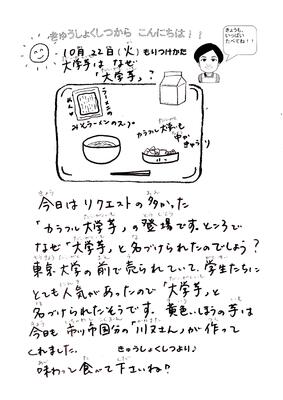 きゅうしょくしつから こんにちは!!
きょうも、
いっぱい
たべてね!!
10月22日(火)もりつけかた
大学芋はなぜ
「大学芋」?
ラーメンの
めん
みそラーメンのスープ
カラフル大学いも
中か
きゅうり
今日はリクエストの多かった
「カラフル大学芋」の登場です。ところで
なぜ「大学芋」と名づけられたのでしょう?
東京大学の前で売られていて、学生たちに
とても人気があったので「大学芋」と
名づけられたそうです。黄色いほうの芋は
今日も市川市国分の「川又さん」が作って
くれました。
きゅうしょくしつより♪
味わって食べて下さいね?